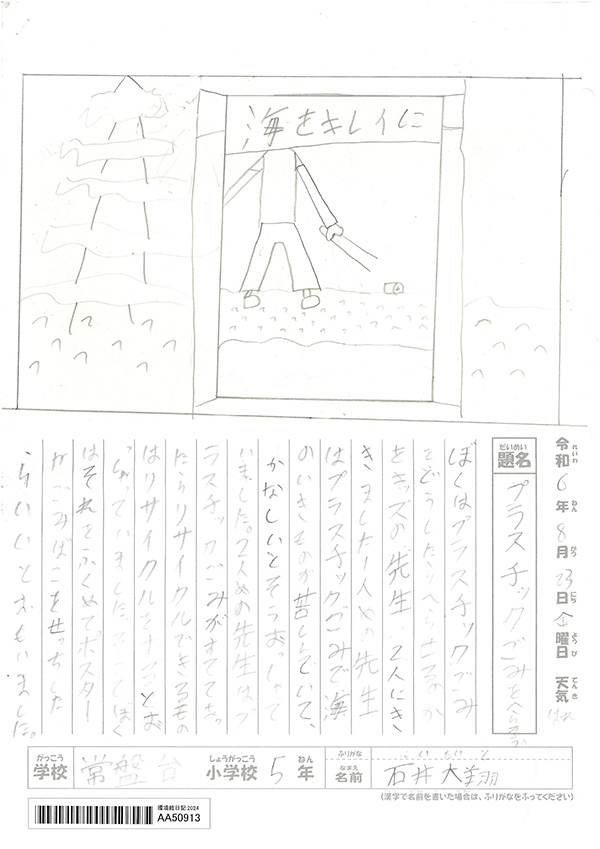 海をキレイに
令和6年8月23日金曜日 天気 はれ
れいわ ねん がつ にち ようび てんき
だいめい
題名 プラスチックごみをへらそう
ぼくはプラスチックごみ
をどうしたらへらせるのか
をキッズの先生2人にき
きました。1人めの先生
はプラスチックごみで海
のいきものが苦しんでいて、
かなしいとそうおっしゃって
いました。2人めの先生はプ
ラスチックごみがすててあっ
たらリサイクルできるもの
はリサイクルをするとお
っしゃっていました。そこでぼく
はそれをふくめてポスター
がごみばこをせっちした
らいいとおもいました。
がっこう しょうがっこう ねん ふりがな
学校 常盤台 小学校 5年 なまえ 名前 石井大翔
(漢字で名前を書いた場合は、ふりがなをふってください)
環境絵日記2024
AA50913